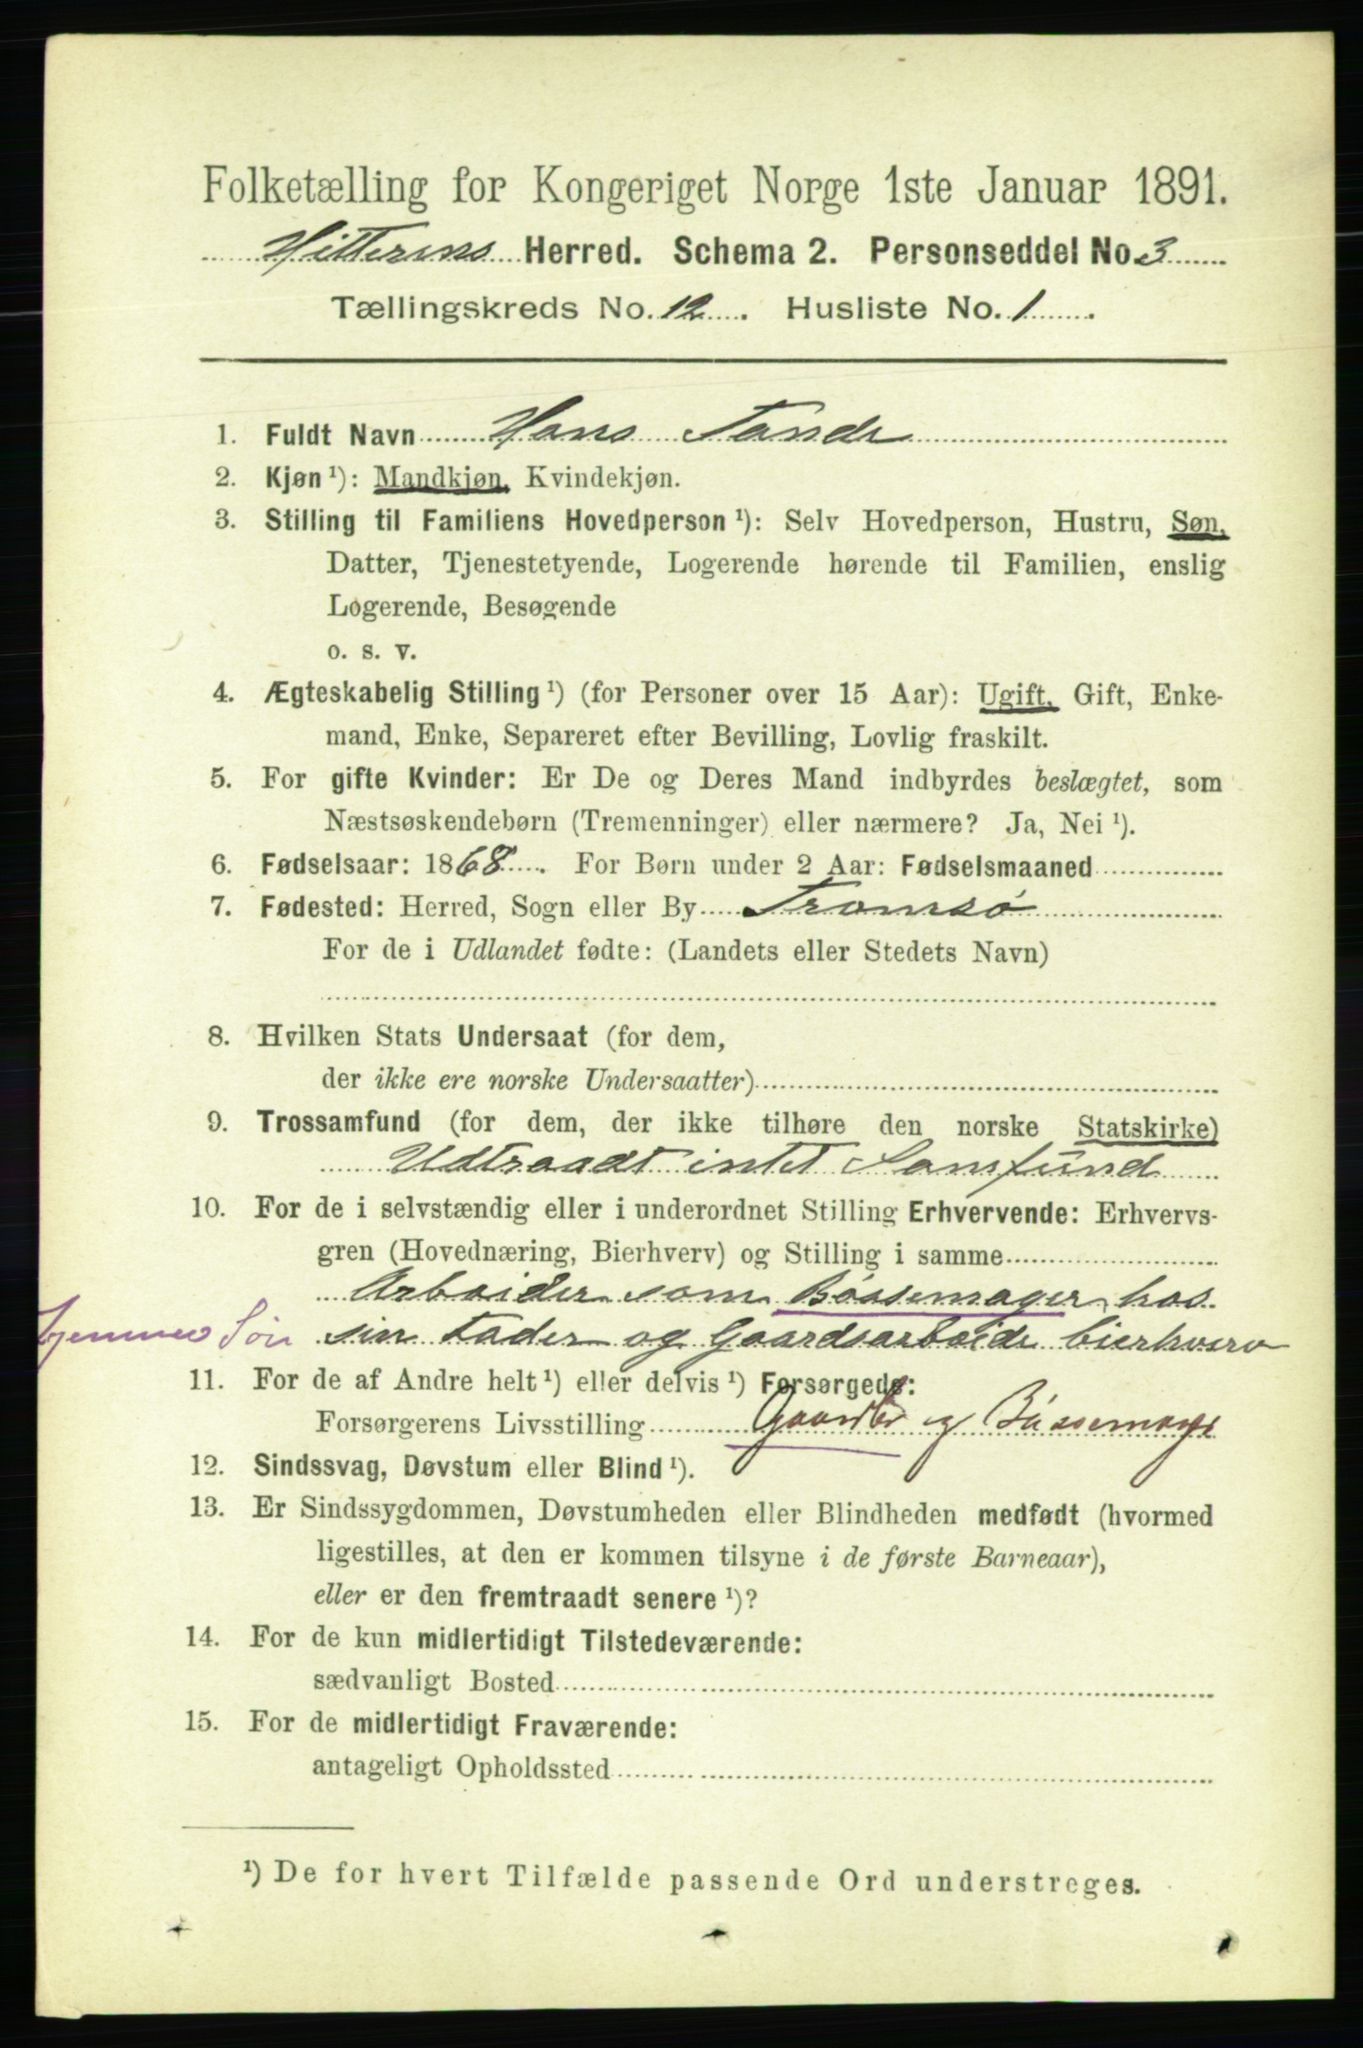 Folketælling for Kongeriget Norge 1ste Januar 1891.
Hitterens Herred. Schema 2. Personseddel No. 3
Tællingskreds No. 12. Husliste No. 1.
1. Fuldt Navn Hans Tande
2. Kjøn ¹): Mandkjøn, Kvindekjøn.
3. Stilling til Familiens Hovedperson ¹): Selv Hovedperson, Hustru, Søn,
Datter, Tjenestetyende, Logerende hørende til Familien, enslig
Logerende, Besøgende
o. s. v.
4. Ægteskabelig Stilling ¹) (for Personer over 15 Aar): Ugift, Gift, Enke-
mand, Enke, Separeret efter Bevilling, Lovlig fraskilt.
5. For gifte Kvinder: Er De og Deres Mand indbyrdes beslægtet, som
Næstsøskendebørn (Tremenninger) eller nærmere? Ja, Nei ¹).
6. Fødselsaar: 1868. For Børn under 2 Aar: Fødselsmaaned
7. Fødested: Herred, Sogn eller By Tromsø
For de i Udlandet fødte: (Landets eller Stedets Navn)
8. Hvilken Stats Undersaat (for dem,
der ikke ere norske Undersaatter)
9. Trossamfund (for dem, der ikke tilhøre den norske Statskirke)
Udtraadt intet Samfund
10. For de i selvstændig eller i underordnet Stilling Erhvervende: Erhvervs-
gren (Hovednæring, Bierhverv) og Stilling i samme
Arbeider som Bøssemager hos
hjemmev Søn sin Fader og Gaardsarbeide bierhverv
11. For de af Andre helt ¹) eller delvis ¹) Forsørgede:
Forsørgerens Livsstilling Gaardbr og Bøssemager
12. Sindssvag, Døvstum eller Blind ¹).
13. Er Sindssygdommen, Døvstumheden eller Blindheden medfødt (hvormed
ligestilles, at den er kommen tilsyne i de første Barneaar),
eller er den fremtraadt senere ¹)?
14. For de kun midlertidigt Tilstedeværende:
sædvanligt Bosted
15. For de midlertidigt Fraværende:
antageligt Opholdssted
¹) De for hvert Tilfælde passende Ord understreges.